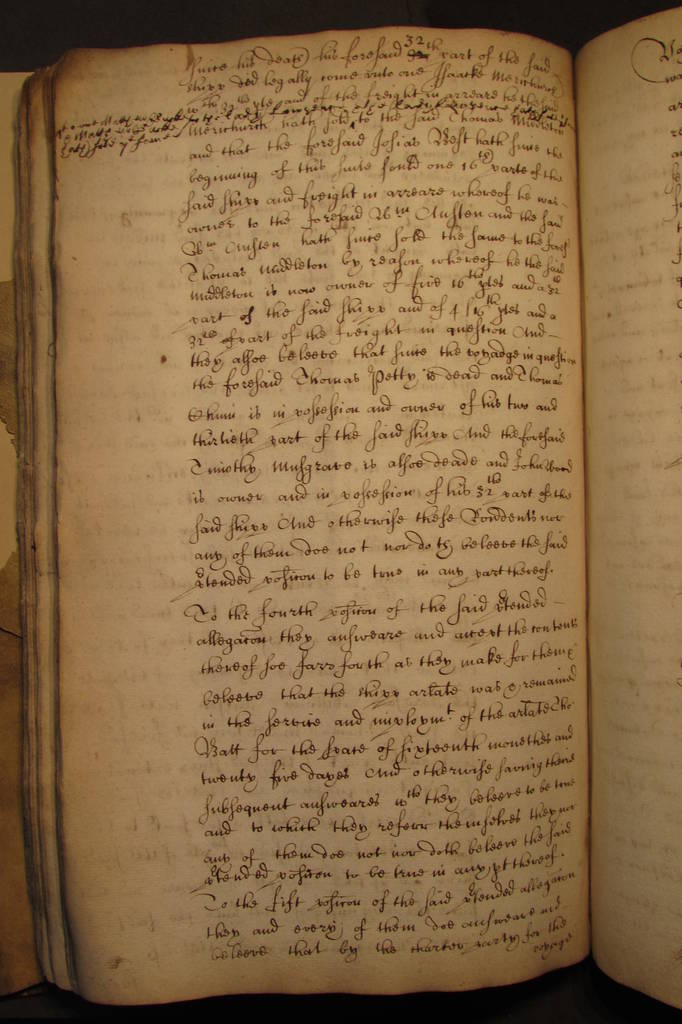 since his death his foresaid 32th part of the said
shipp did legally come unto one Isaacke Merichurch
wth 32th pte and of the freight in arreare he the said
Merichurch hath sold to the said Thomas Middleton
and that the foresaid Josias Best hath since the
beginning of this suite sould one 16th parte of the
said shipp and freight in arreare whereof he was
owner to the foresaid Wm Austen and the said
Wm Austen hath since sold the same to the said
Thomas Middleton by reason whereof he the said
Middleton is now owner of five 16th ptes and a 32th
part of the said shipp and of 4 16th ptes and a
32th part of the freight in question And
they alsoe beleeve that since the voyadge in question
the foresaid Thomas Petty is dead and Thomas
is in possession and owner of his two and
thirtieth part of the said shipp And the foresaid
Timothy Musgrave is alsoe deade and John Wood
is owner and in possession of his 32th part of the
said shipp And otherwise these Rondents nor
any of them doe not nor doth beleeve the said
ptended posicon to be true in any part thereof.
To the fourth posicon of the said ptended
allegacon they answeare and accept the contents
thereof soe farr forth as they make for them
beleeve that the shipp arlate was & remained
in the service and imploymt of the arlate Tho
Batt for the space of sixteenth monethes and
twenty five dayes And otherwise saving theire
subsequent answeares wch they beleeve to be true
and to which they referr themselves they nor
any of them doe not nor doth beleeve the said
ptended posicon to be true in any pt thereof.
To the fift posicon of the said ptended allegacon
they and every of them doe answeare and
beleeve that by the charter party for the
voyage